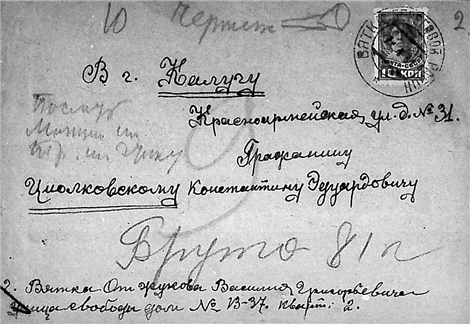 10 Чертеж 2.
10 КОП
В г. Калугу
Красноармейская ул. д. № 31.
Гражданину
Циолковскому Константину Эдуардовичу
Бруто 81 г
2. Вятка От Жукова Василия Григорьевича
улица свободы дом № В-37. кварт: 2.